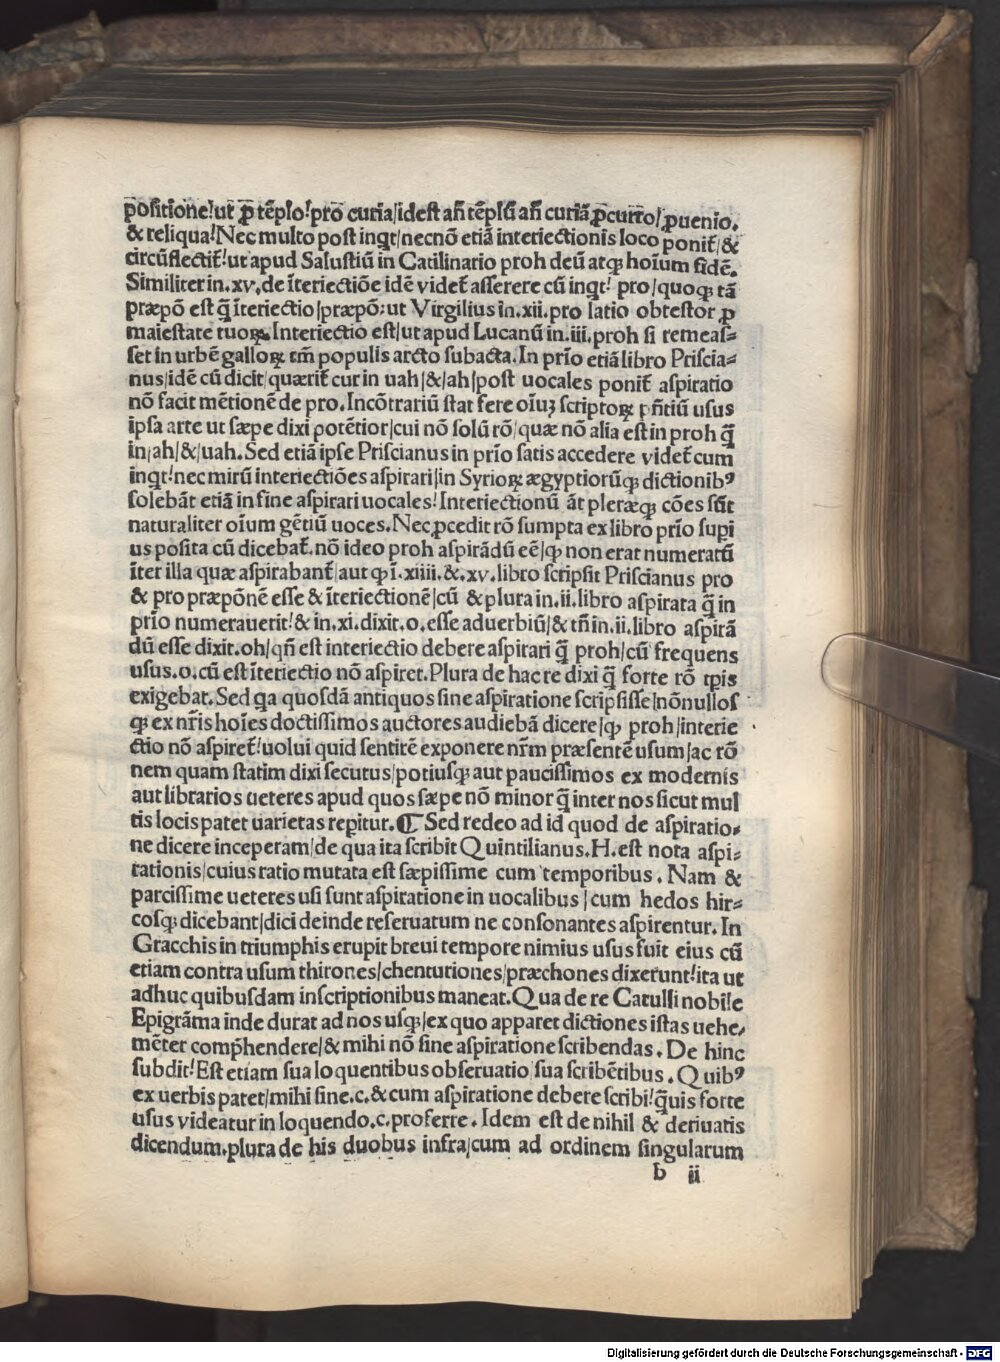 positione!ut ꝓ tẽplo!pro curia/idest añ tẽplũ añ curiã ꝓcurro/ꝓuenio.
& reliqua!Nec multo post inqt/necnõ etiã interiectionis loco ponit̃/&
circũflectit̃!ut apud Salustiũ in Catilinario proh deũ atqꝫ hoium fidẽ.
Similiter in.xv.de ĩteriectiõe idẽ videt̃ asserere cũ inqt! pro/quoqꝫ tã
præpõ est q̃ ĩteriectio/præpõ:ut Virgilius in.xii.pro latio obtestor ꝓ
maiestate tuoꝝ.Interiectio est/ut apud Lucanũ in.iii.proh si remeas⸗
set in urbẽ galloꝝ tm̃ populis arcto subacta.In prĩo etiã libro Priscia⸗
nus/idẽ cũ dicit/quærit̃ cur in uah/&/ah/post uocales ponit̃ aspiratio
nõ facit mẽtionẽ de pro.Incõtrariũ stat fere oĩuꝫ scriptoꝝ pñtiũ usus
ipsa arte ut sæpe dixi potẽtior/cui nõ solũ rõ/quæ nõ alia est in proh q̃
in/ah/&/uah.Sed etiã ipse Priscianus in prĩo satis accedere videt̃ cum
inqt!nec mirũ interiectiões aspirari/in Syrioꝝ ægyptiorũqꝫ dictionibꝰ
solebãt etiã in fine aspirari uocales!Interiectionũ ãt pleræqꝫ cões sũt
naturaliter oĩum gẽtiũ uoces.Nec ꝓcedit rõ sumpta ex libro prĩo supi
us posita cũ dicebat̃.nõ ideo proh aspirãdũ eẽ/qꝫ non erat numeratũ
ĩter illa quæ aspirabant̃/aut qꝫ ĩ.xiiii.&.xv.libro scripsit Priscianus pro
& pro præpõnẽ esse & ĩteriectionẽ/cũ & plura in.ii.libro aspirata q̃ in
prĩo numerauerit!& in.xi.dixit.o.esse aduerbiũ/& tñ in.ii.libro aspirã
dũ esse dixit.oh/qñ est interiectio debere aspirari q̃ proh/cũ frequens
usus.o.cũ est ĩteriectio nõ aspiret.Plura de hac re dixi q̃ forte rõ tꝑis
exigebat.Sed qa quosdã antiquos sine aspiratione scripsisse/nõnullos
qꝫ ex nr̃is hoĩes doctissimos auctores audiebã dicere/qꝫ proh/interie
ctio nõ aspiret̃!uolui quid sentirẽ exponere nr̃m præsentẽ usum/ac rõ
nem quam statim dixi secutus/potiusqꝫ aut paucissimos ex modernis
aut librarios ueteres apud quos sæpe nõ minor q̃ inter nos sicut mul
tis locis patet uarietas repitur.¶ Sed redeo ad id quod de aspiratio⸗
ne dicere inceperam/de qua ita scribit Quintilianus.H.est nota aspi⸗
rationis/cuius ratio mutata est sæpissime cum temporibus. Nam &
parcissime ueteres usi sunt aspiratione in uocalibus/cum hedos hir⸗
cosqꝫ dicebant/dici deinde reseruatum ne consonantes aspirentur. In
Gracchis in triumphis erupit breui tempore nimius usus fuit eius cũ
etiam contra usum thirones/chenturiones/præchones dixerunt!ita ut
adhuc quibusdam inscriptionibus maneat.Qua de re Catulli nobile
Epigrãma inde durat ad nos usqꝫ/ex quo apparet dictiones istas uehe⸗
mẽter comp̃hendere/& mihi nõ sine aspiratione scribendas. De hinc
subdit!Est etiam sua loquentibus obseruatio sua scribẽtibus.Quibꝰ
ex uerbis patet/mihi sine.c.& cum aspiratione debere scribi!q̃uis forte
usus videatur in loquendo.c.proferre. Idem est de nihil & deriuatis
dicendum.plura de his duobus infra/cum ad ordinem singularum
b ii
Digitalisierung gefördert durch die Deutsche Forschungsgemeinschaft - DFG